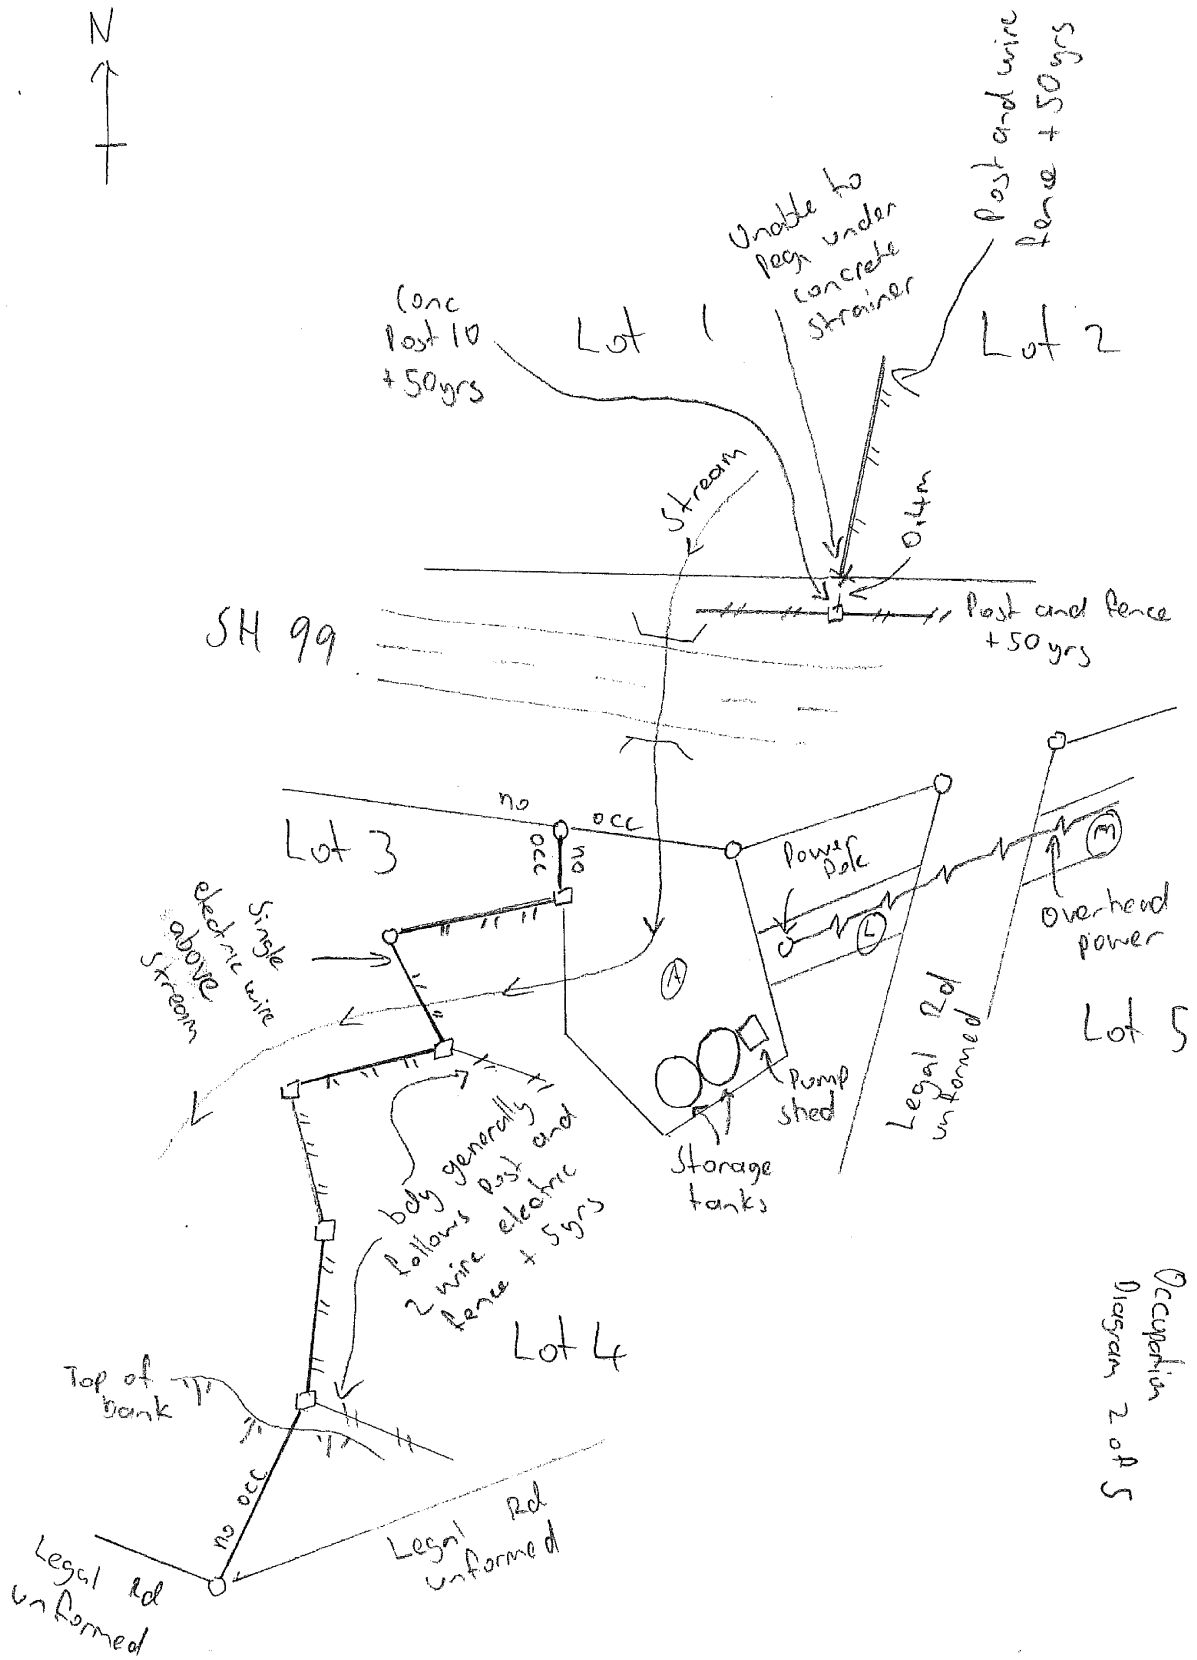 N
Post and wire
fence + 50yrs
Unable to
peg under
concrete
strainer
Conc
Post 10
+ 50yrs
Lot 1
Lot 2
Stream
0.4m
SH 99
Post and fence
+ 50 yrs
no occ
Lot 3
no
occ
Power
Pole
M
L
Overhead
power
Single
electric wire
above
stream
A
Lot 5
Legal Rd
unformed
Pump
shed
Storage
tanks
bdy generally
follows post and
2 wire electric
fence + 5yrs
Lot 4
Top of
bank
no occ
Legal Rd
unformed
Legal Rd
unformed
Occupation
Diagram 2 of 5